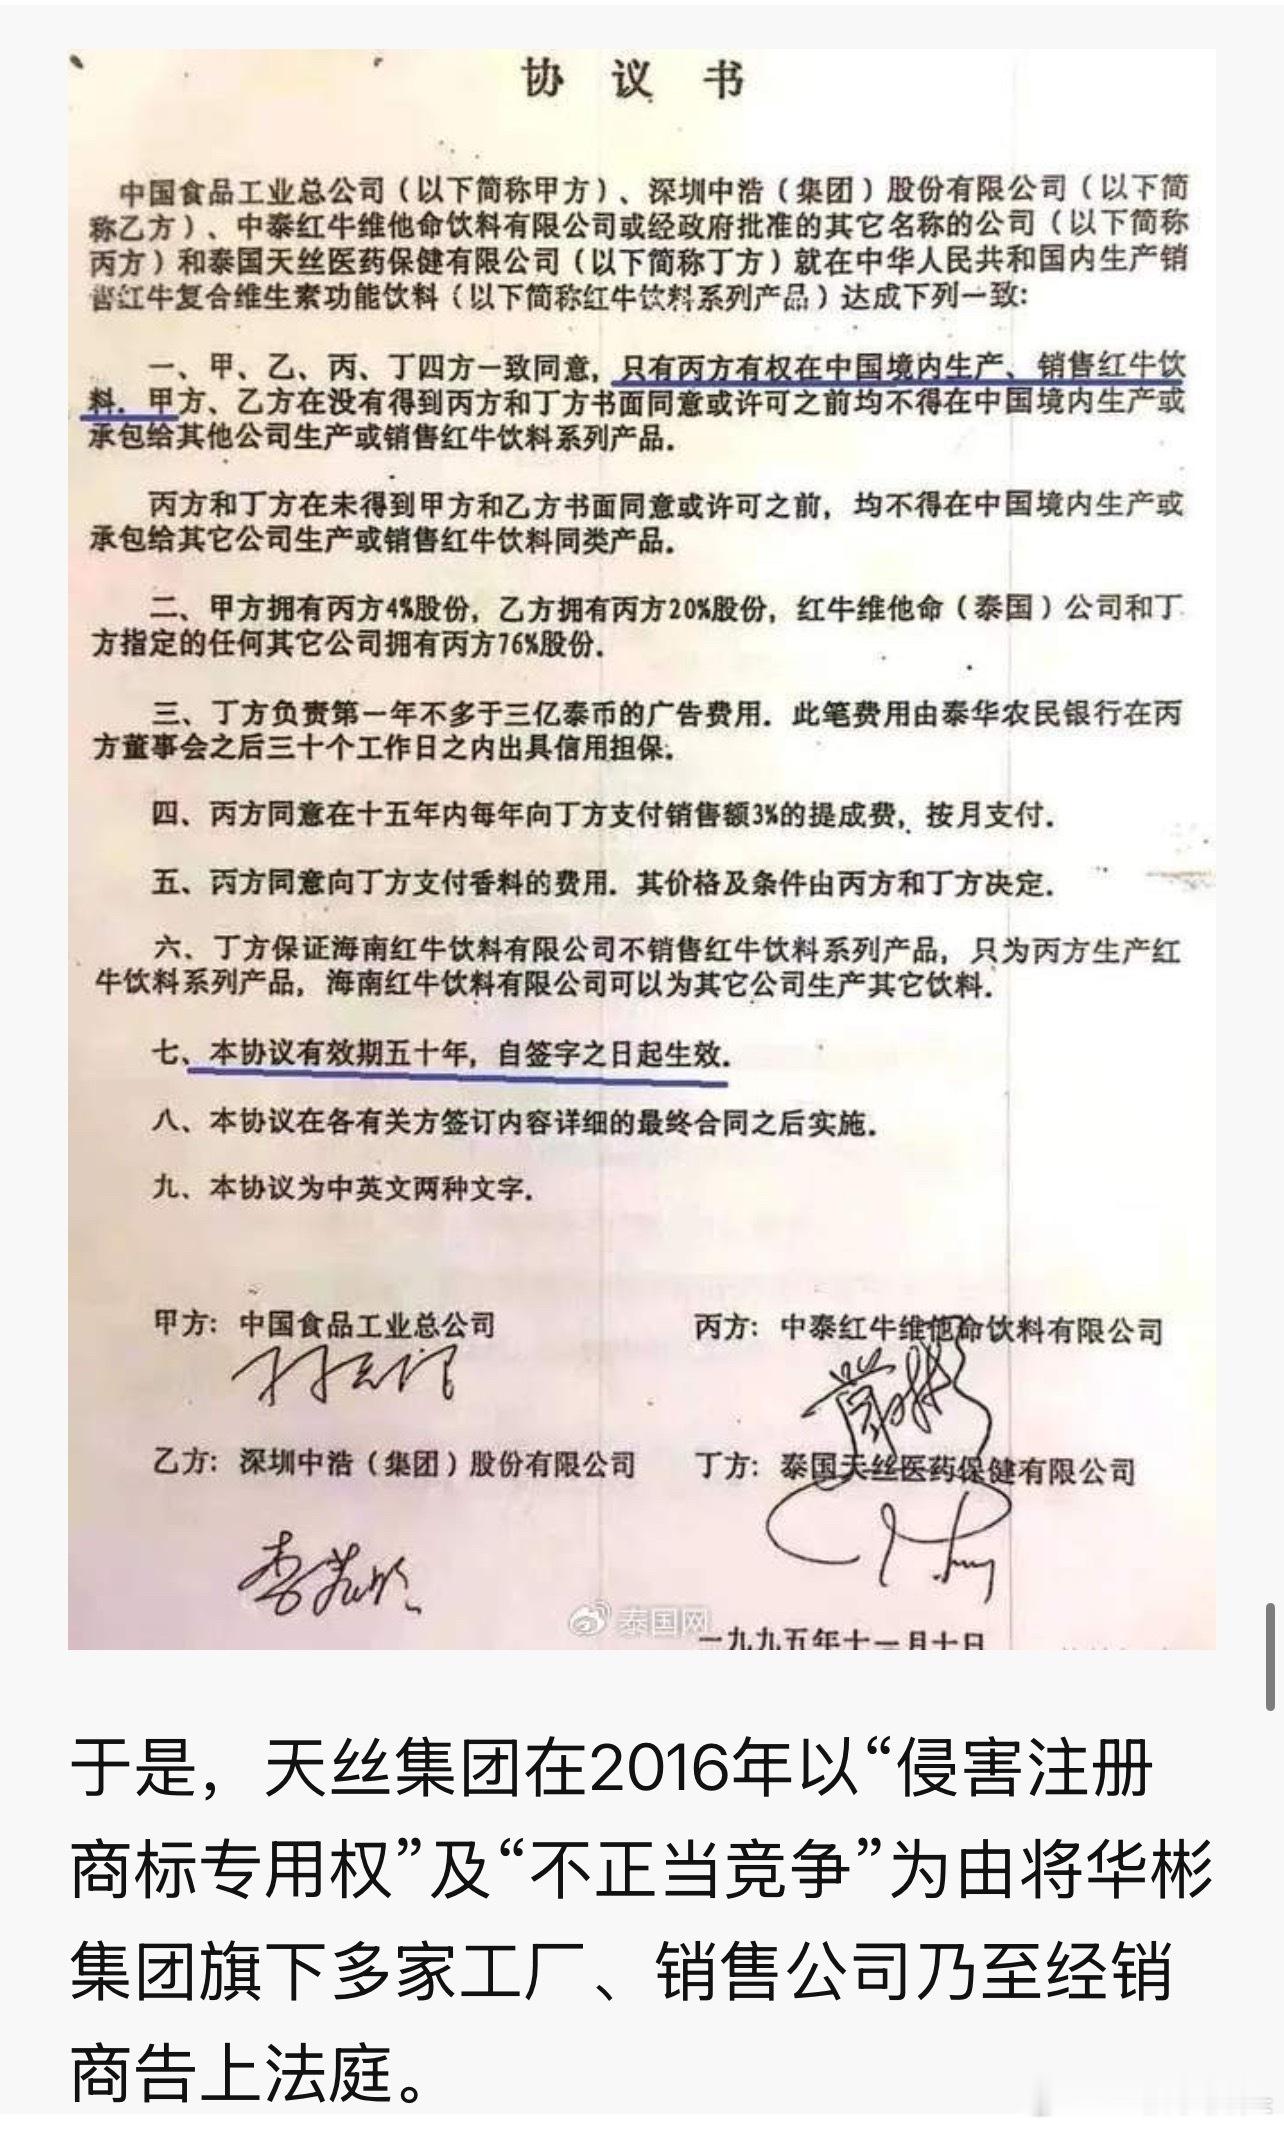 协 议 书
中国食品工业总公司（以下简称甲方）、深圳中浩（集团）股份有限公司（以下简
称乙方）、中泰红牛维他命饮料有限公司或经政府批准的其它名称的公司（以下简称
丙方）和泰国天丝医药保健有限公司（以下简称丁方）就在中华人民共和国内生产销
售红牛复合维生素功能饮料（以下简称红牛饮料系列产品）达成下列一致：
一、甲、乙、丙、丁四方一致同意，只有丙方有权在中国境内生产、销售红牛饮
料．甲方、乙方在没有得到丙方和丁方书面同意或许可之前均不得在中国境内生产或
承包给其他公司生产或销售红牛饮料系列产品．
丙方和丁方在未得到甲方和乙方书面同意或许可之前，均不得在中国境内生产或
承包给其它公司生产或销售红牛饮料同类产品．
二、甲方拥有丙方4%股份，乙方拥有丙方20%股份，红牛维他命（泰国）公司和丁
方指定的任何其它公司拥有丙方76%股份．
三、丁方负责第一年不多于三亿泰币的广告费用．此笔费用由泰华农民银行在丙
方董事会之后三十个工作日之内出具信用担保．
四、丙方同意在十五年内每年向丁方支付销售额3%的提成费，按月支付．
五、丙方同意向丁方支付香料的费用．其价格及条件由丙方和丁方决定．
六、丁方保证海南红牛饮料有限公司不销售红牛饮料系列产品，只为丙方生产红
牛饮料系列产品，海南红牛饮料有限公司可以为其它公司生产其它饮料．
七、本协议有效期五十年，自签字之日起生效．
八、本协议在各有关方签订内容详细的最终合同之后实施．
九、本协议为中英文两种文字．
甲方：中国食品工业总公司
丙方：中泰红牛维他命饮料有限公司
乙方：深圳中浩（集团）股份有限公司
丁方：泰国天丝医药保健有限公司
泰国网
一九九五年十一月十日
于是，天丝集团在2016年以“侵害注册
商标专用权”及“不正当竞争”为由将华彬
集团旗下多家工厂、销售公司乃至经销
商告上法庭。